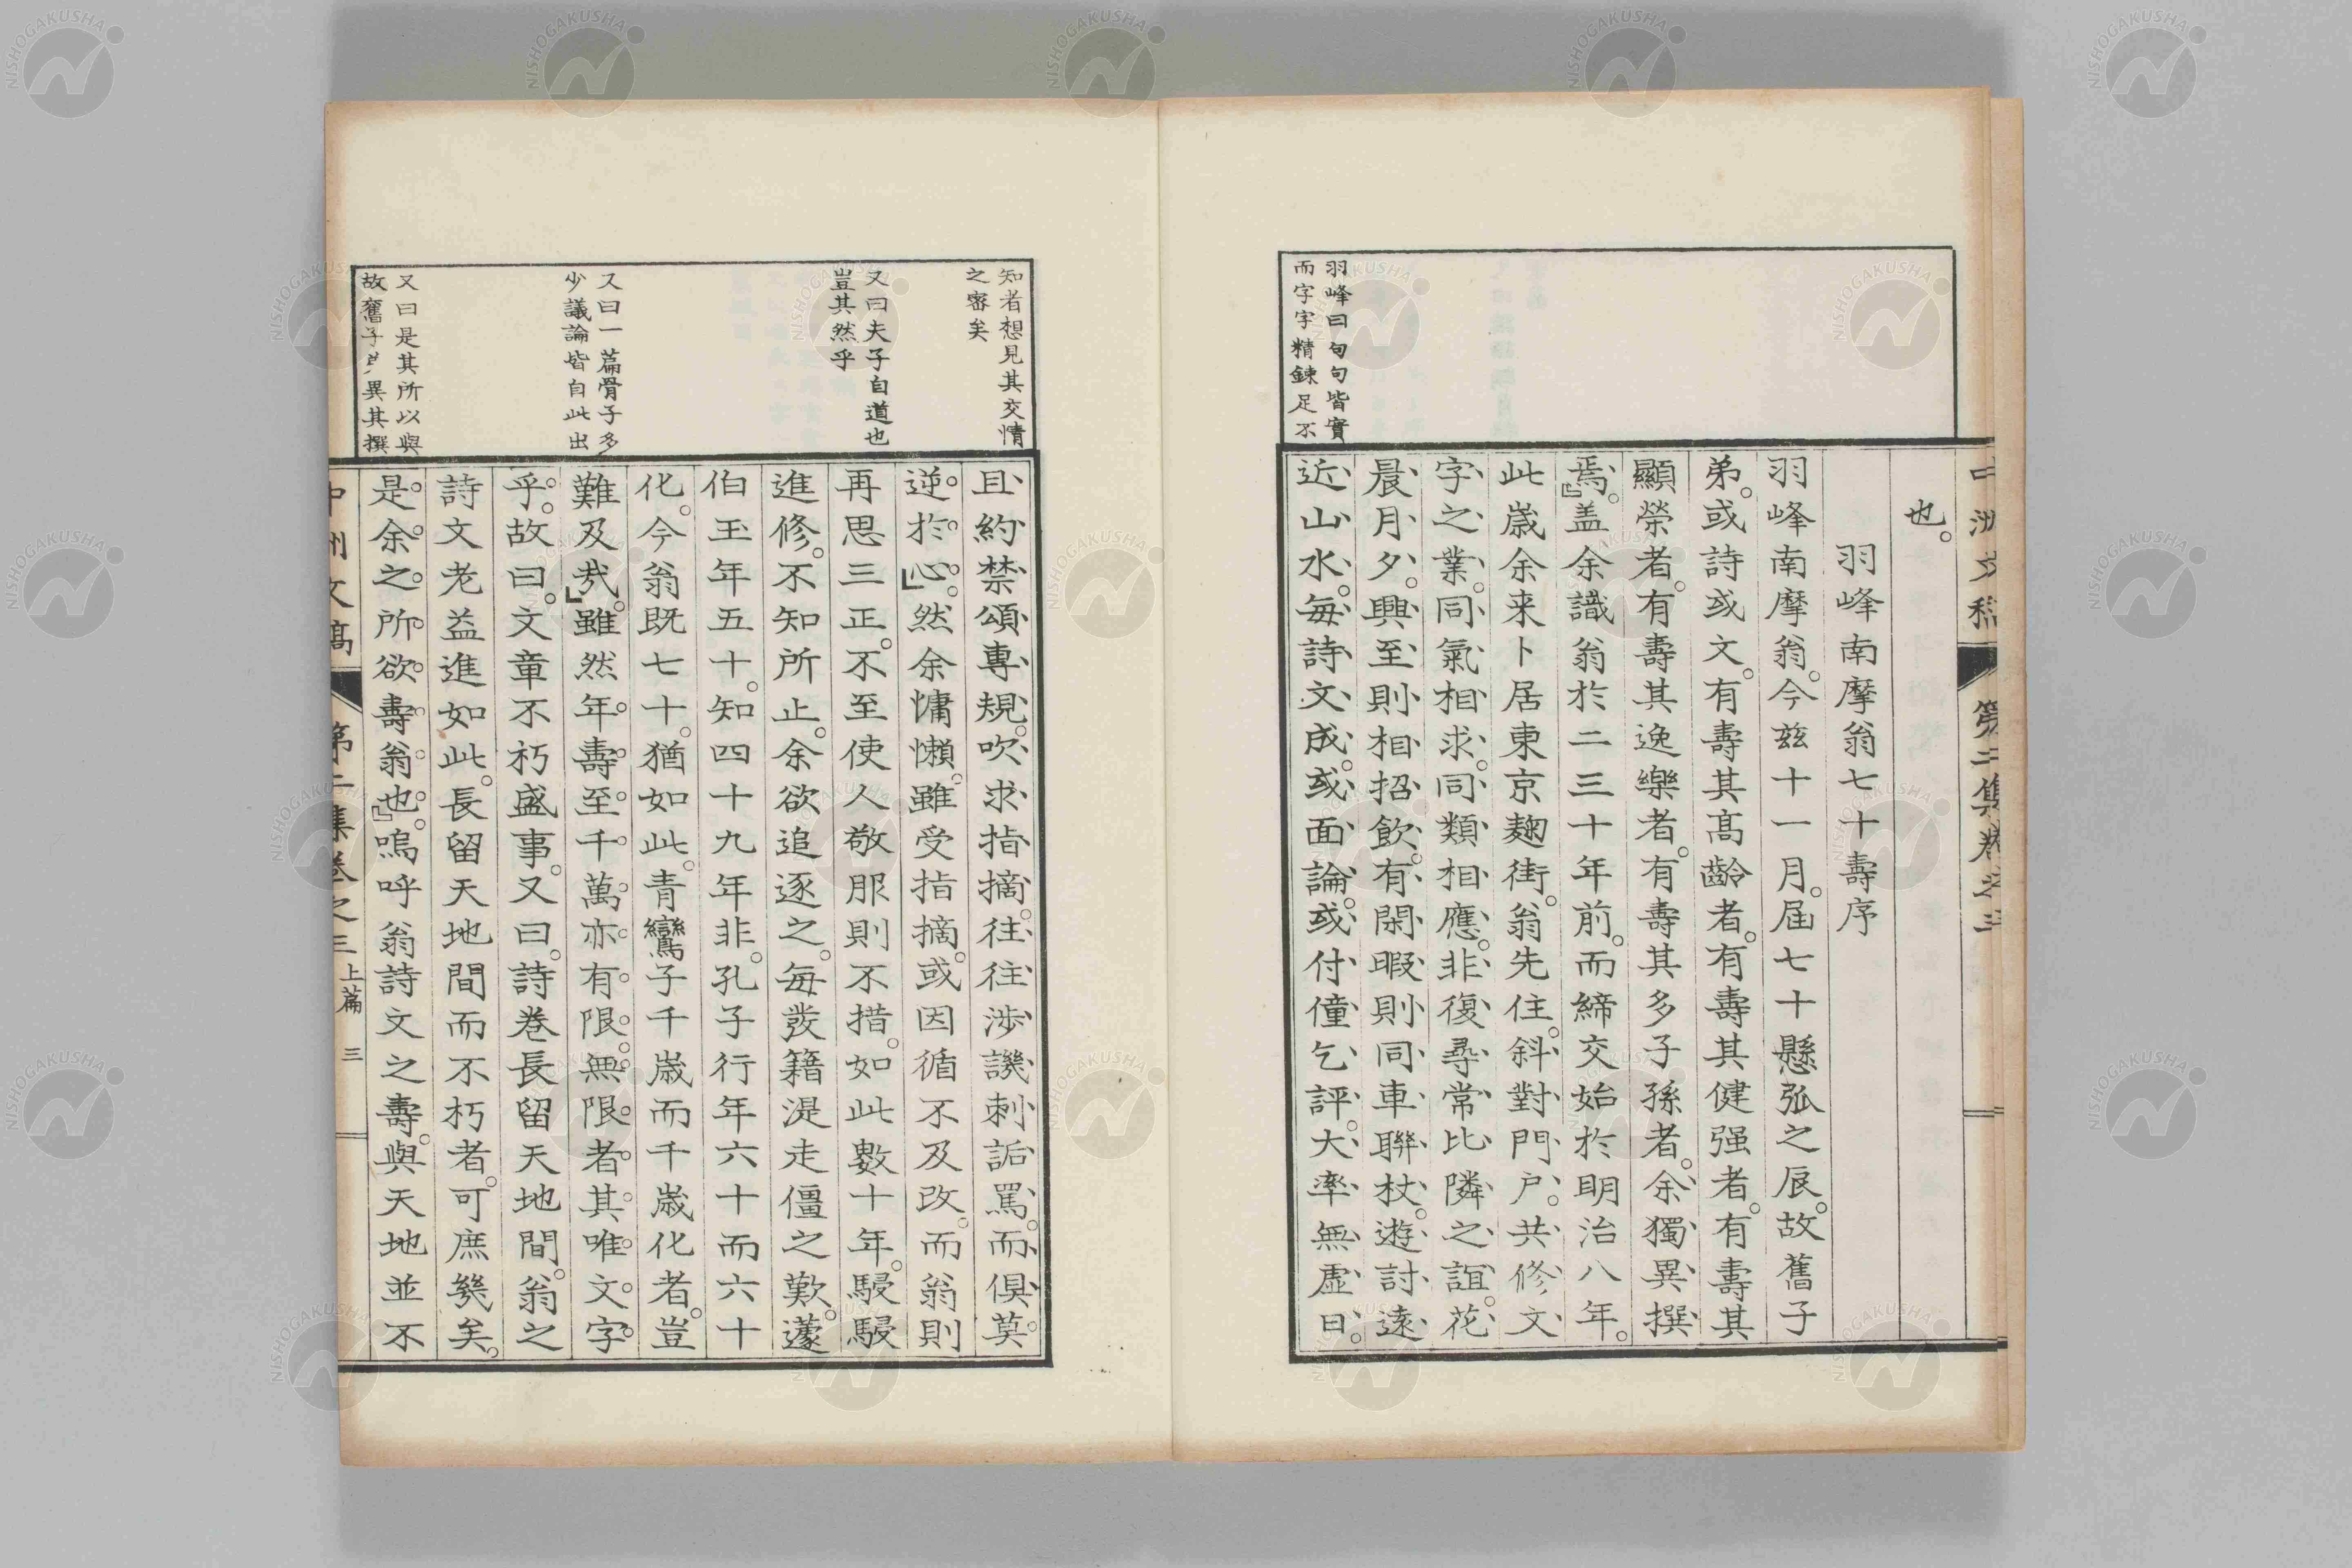 也。
羽峰南摩翁七十壽序
羽峰南摩翁。今茲十一月。屆七十懸弧之辰。故舊子
弟。或詩或文。有壽其高齡者。有壽其健强者。有壽其
顯榮者。有壽其逸樂者。有壽其多子孫者。余獨異撰
焉。』盖余識翁於二三十年前。而締交始於明治八年。
此歲余来卜居東京麹街。翁先住。斜對門戶。共修文
字之業。同氣相求。同類相應。非復尋常比隣之誼。花
晨月夕。興至則相招飲。有閑暇則同車聯杖。遊討遠
近山水。每詩文成。或面論。或付僮乞評。大率無虛日。
羽峰曰句句皆實
而字字精鍊足不
知者想見其交情
之密矣
又曰夫子自道也
豈其然乎
又曰一篇骨子多
少議論皆自此出
又曰是其所以與
故舊子弟異其撰
且約禁頌專規。吹求指摘。往往涉譏刺詬罵。而俱莫
逆於心。』然余慵懶。雖受指摘。或因循不及改。而翁則
再思三正。不至使人敬服則不措。如此數十年。駸駸
進修。不知所止。余欲追逐之。每發籍湜走僵之歎。蘧
伯玉年五十。知四十九年非。孔子行年六十而六十
化。今翁既七十。猶如此。青鸞子千歲而千歲化者。豈
難及哉。』雖然年壽至千萬亦有限。無限者其唯文字
乎。故曰。文章不朽盛事。又曰。詩卷長留天地間。翁之
詩文老益進如此。長留天地間而不朽者。可庶幾矣。
是余之所欲壽翁也。』嗚呼翁詩文之壽。與天地並不
中洲文稿 第二集卷之三 上篇 三
NISHOGAKUSHA